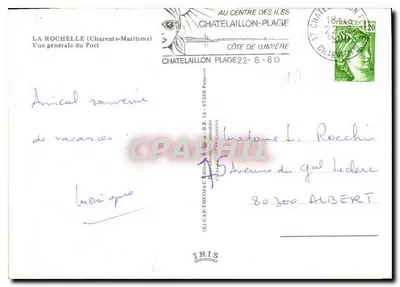 LA ROCHELLE (Charente-Maritime)
Vue générale du Port
AU CENTRE DES ILES
CHATELAILLON-PLAGE
CÔTE DE LUMIÈRE
CHATELAILLON PLAGE 22-8-80
1,20
Amical souvenir
de vacances
Monique
Madame L. Rocchi
75 Avenue du gal Leclerc
80300 ALBERT
IRIS
CPARAMA